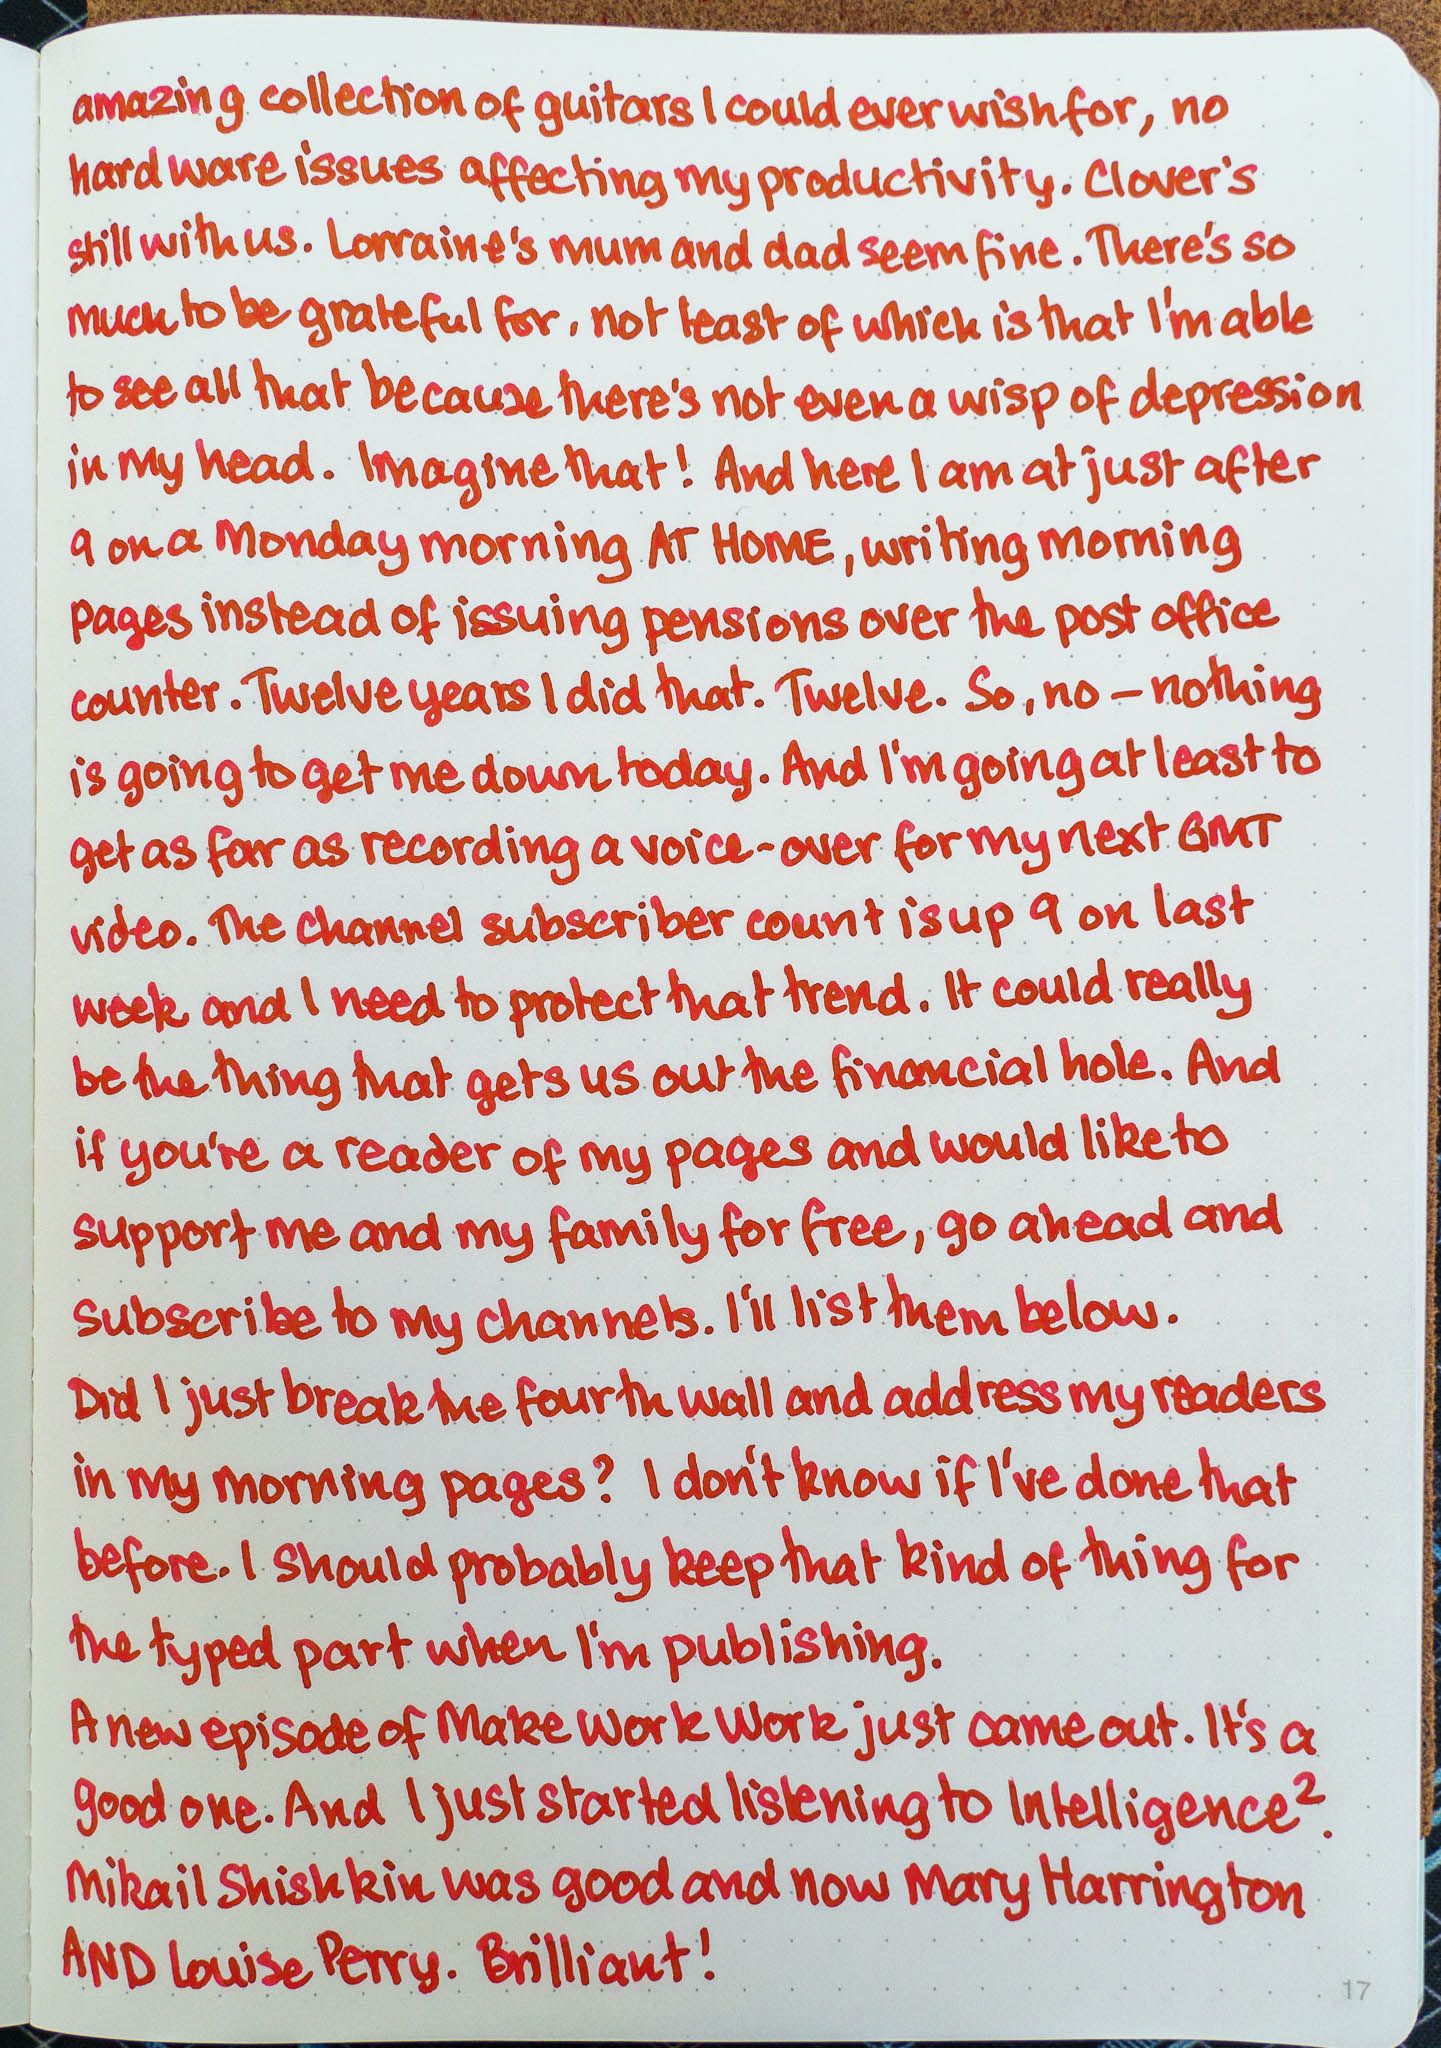 amazing collection of guitars I could ever wish for, no
hardware issues affecting my productivity. Clover's
still with us. Lorraine's mum and dad seem fine. There's so
much to be grateful for, not least of which is that I'm able
to see all that because there's not even a wisp of depression
in my head. Imagine that! And here I am at just after
9 on a Monday morning AT HOME, writing morning
pages instead of issuing pensions over the post office
counter. Twelve years I did that. Twelve. So, no – nothing
is going to get me down today. And I'm going at least to
get as far as recording a voice-over for my next GMT
video. The channel subscriber count is up 9 on last
week and I need to protect that trend. It could really
be the thing that gets us out the financial hole. And
if you're a reader of my pages and would like to
support me and my family for free, go ahead and
subscribe to my channels. I'll list them below.
Did I just break the fourth wall and address my readers
in my morning pages? I don't know if I've done that
before. I should probably keep that kind of thing for
the typed part when I'm publishing.
A new episode of Make Work Work just came out. It's a
good one. And I just started listening to Intelligence².
Mikail Shishkin was good and now Mary Harrington
AND Louise Perry. Brilliant!
17